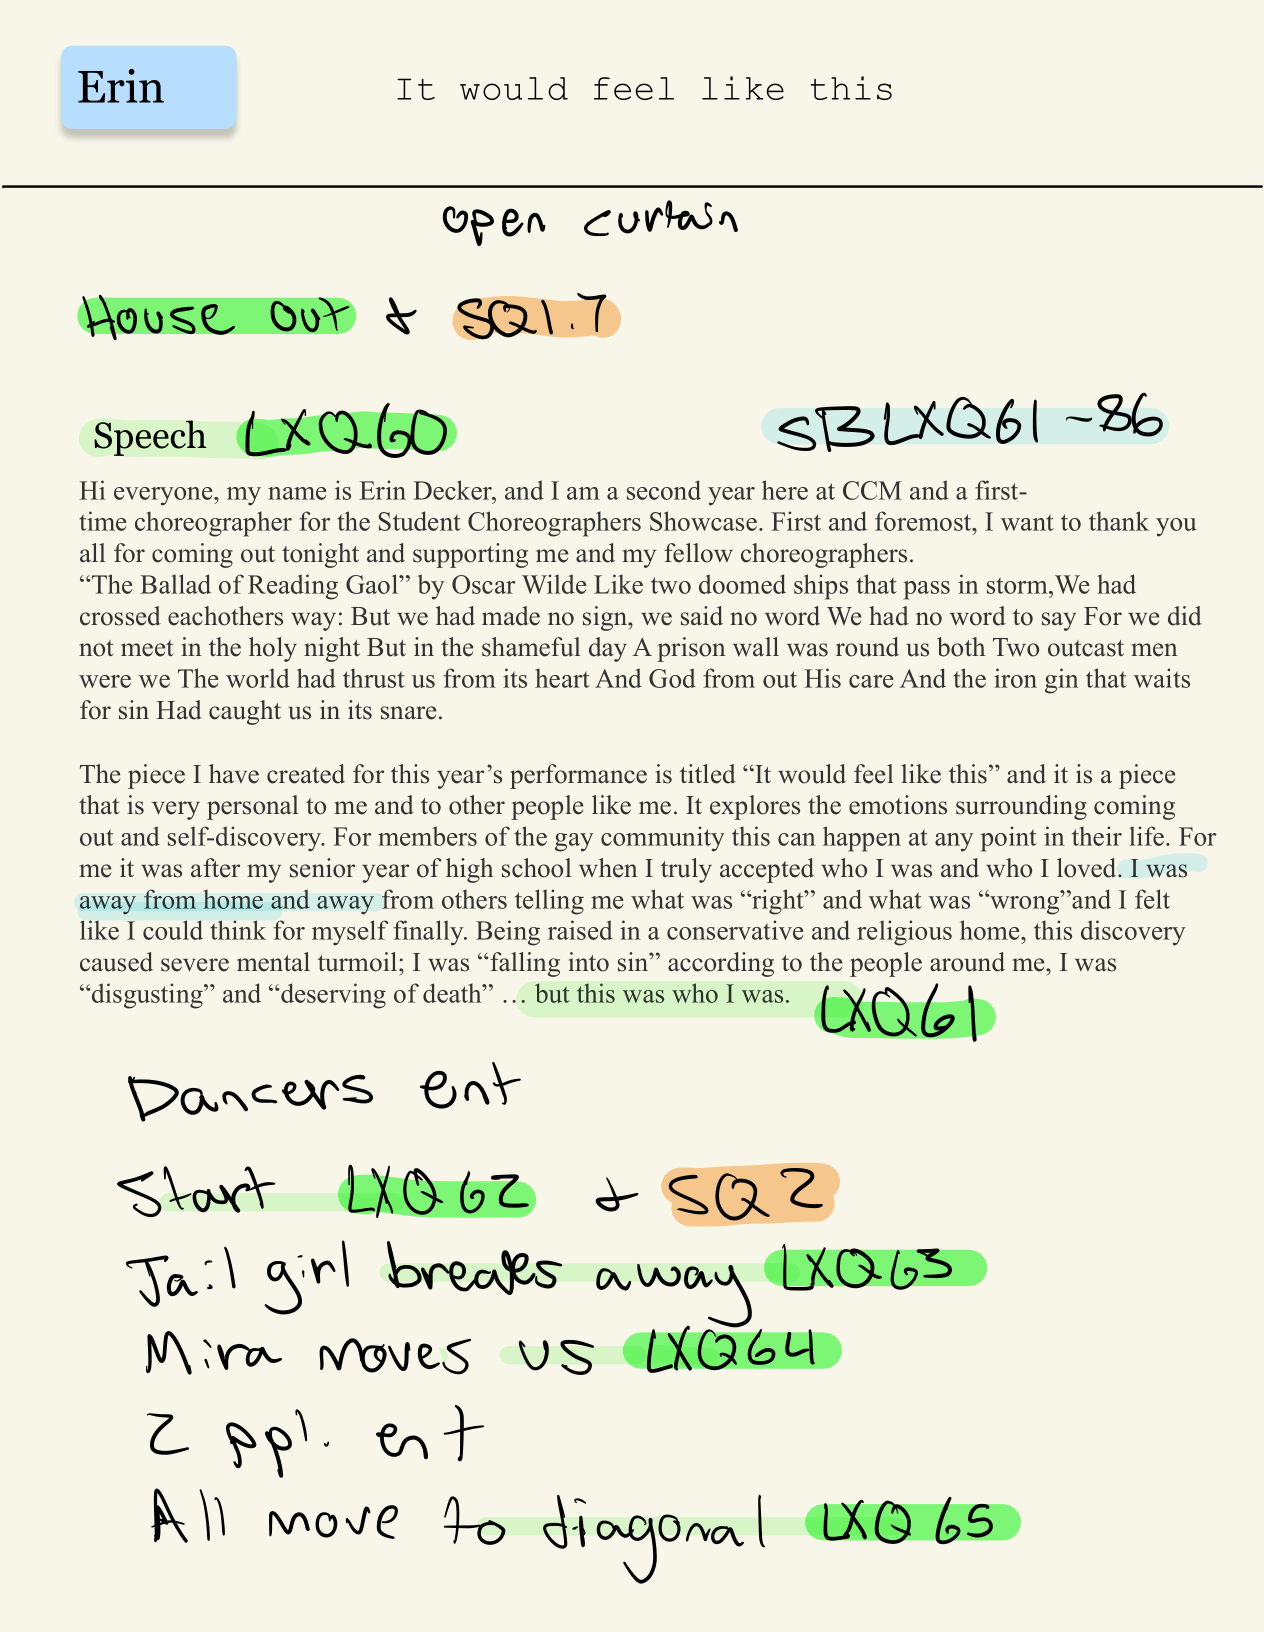 Erin
It would feel like this
open curtain
House out & SQ1.7
Speech LXQ60 SB LXQ61-86
Hi everyone, my name is Erin Decker, and I am a second year here at CCM and a first-
time choreographer for the Student Choreographers Showcase. First and foremost, I want to thank you
all for coming out tonight and supporting me and my fellow choreographers.
“The Ballad of Reading Gaol” by Oscar Wilde Like two doomed ships that pass in storm,We had
crossed eachothers way: But we had made no sign, we said no word We had no word to say For we did
not meet in the holy night But in the shameful day A prison wall was round us both Two outcast men
were we The world had thrust us from its heart And God from out His care And the iron gin that waits
for sin Had caught us in its snare.
The piece I have created for this year’s performance is titled “It would feel like this” and it is a piece
that is very personal to me and to other people like me. It explores the emotions surrounding coming
out and self-discovery. For members of the gay community this can happen at any point in their life. For
me it was after my senior year of high school when I truly accepted who I was and who I loved. I was
away from home and away from others telling me what was “right” and what was “wrong”and I felt
like I could think for myself finally. Being raised in a conservative and religious home, this discovery
caused severe mental turmoil; I was “falling into sin” according to the people around me, I was
“disgusting” and “deserving of death” … but this was who I was. LXQ61
Dancers ent
Start LXQ62 & SQ2
Jail girl breaks away LXQ63
Mira moves us LXQ64
2 ppl. ent
All move to diagonal LXQ65